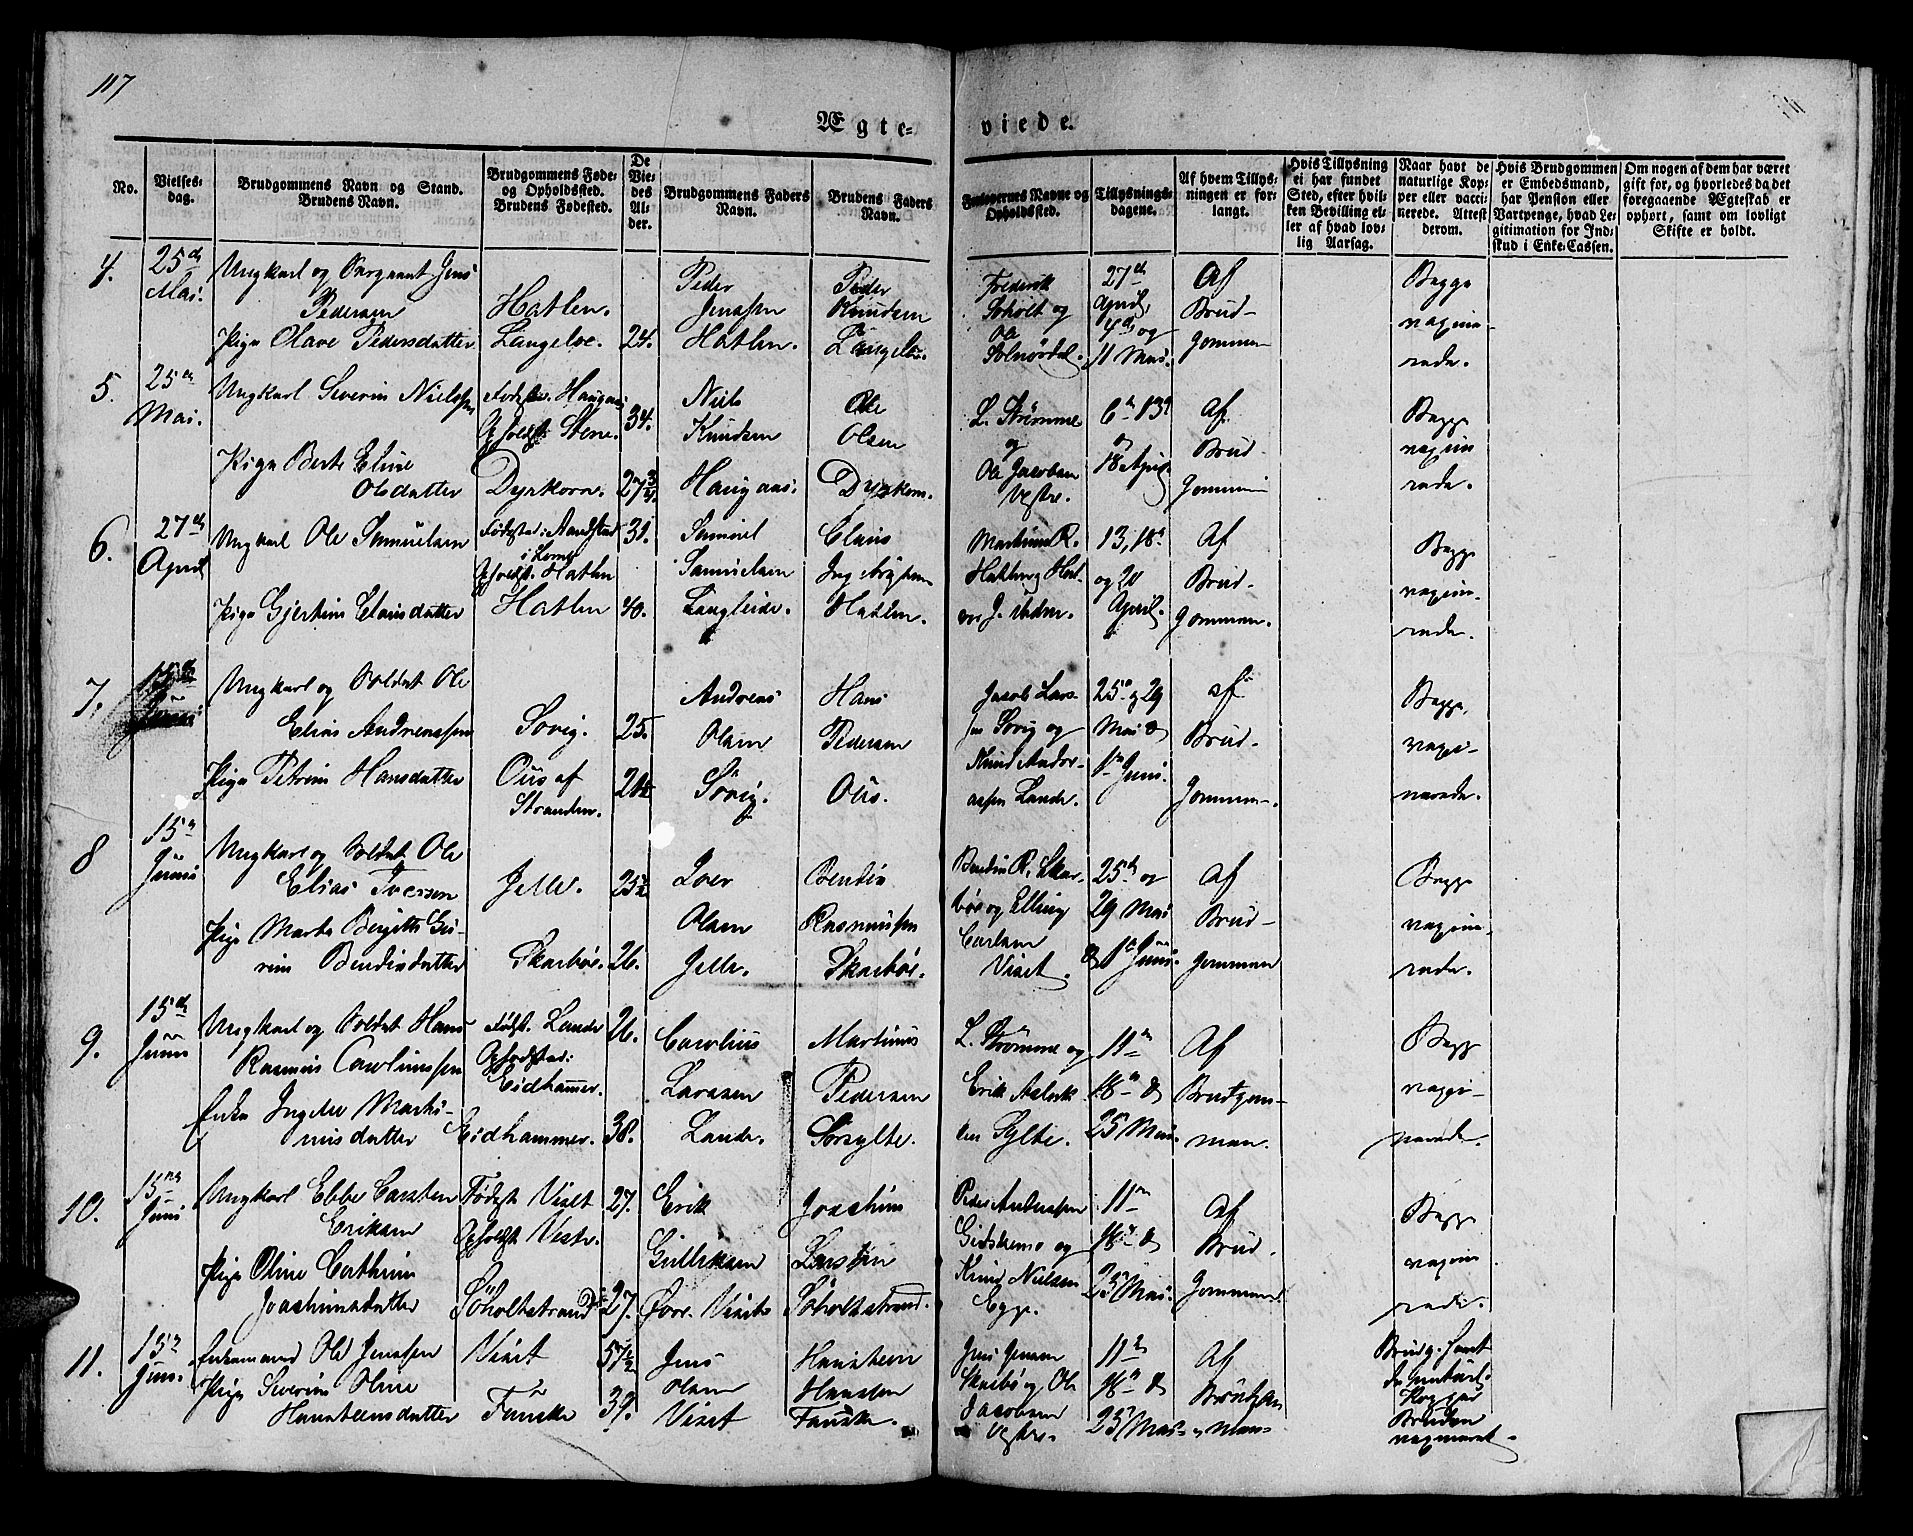 117
Ægte- viede.
No.
Vielses-
dag.
Brudgommens Navn og Stand.
Brudens Navn.
Brudgommens Føde-
og Opholdssted.
Brudens Fødested.
De
Vie-
des
Al-
der.
Brudgommens Faders
Navn.
Brudens Faders
Navn.
Forlovernes Navne og
Opholdssted.
Tillysnings-
dagene.
Af hvem Tillys-
ningen er for-
langt.
Hvis Tillysning
ei har fundet
Sted, efter hvil-
ken Bevilling el-
ler af hvad lov-
lig Aarsag.
Naar havt de
naturlige Kop-
per eller vacci-
nerede. Attest
derom.
Hvis Brudgommen
er Embedsmand,
har Pension eller
Vartpenge, hvad Le-
gitimation for Ind-
skud i Enke-Cassen.
Om nogen af dem har været
gift før, og hvorledes da det
foregaaende Ægteskab er
ophørt, samt om lovligt
Skifte er holdt.
4.
25de
Mai.
Ungkarl og Sergeant Jens
Pedersen
Pige Olave Pedersdatter
Hatlen.
Langeloe.
24.
Peder
Jenssen
Hatlen.
Peder
Knudsen
Langeloe.
Frederik
Soholt og
Ole
Solnørdal.
27de
April,
4de og
11 Mai.
Af
Brud-
gommen
Begge
vaxine-
rede.
5.
25de
Mai.
Ungkarl Severin Nielssen
Pige Berte Eline
Olsdatter
Fødested: Haugaas
Opholdst. Stene.
Dyrkorn.
34.
27 3/4.
Niels
Knudsen
Haugaas.
Ole
Olsen
Dyrkorn.
L. Strømme
og
Ole Jacobsen
Vestre.
6te 13de
og
18 April
Af
Brud-
gommen
Begge
vaxine
rede.
6.
27de
April
Ungkarl Ole Samuelsen
Pige Gjertine Clausdatter
Fødested:
i Lom
Opholdst. Hatlen
Hatlen
31.
40.
Samuel
Samuelsen
Langleide.
Claus
Hatlen.
Martinus R.
Hatlen og
13, 18de
og 20
April.
Af
Brud-
gommen.
Begge
vaxine-
rede.
7.
15de
Juni
Ungkarl og Soldat Ole
Elias Andreassen
Pige Petrine Hansdatter
Sovig.
Ous af
Stranden.
25.
Andreas
Olsen
Søvig.
Hans
Pedersen
Ous.
Jacob Lars-
sen Sovig og
Knud Andre-
assen Lande.
25de og 29
Mai &
1ste Juni.
af
Brud-
gommen.
Begge
vaxi-
nerede.
8
15de
Juni
Ungkarl og Soldat Ole
Elias Iversen
Pige Marte Birgitte Gu-
rine Bendixdatter
Jelle.
Skarbøe.
25 1/2
26.
Iver
Olsen
Jelle.
Bendix
Rasmussen
Skarbøe.
Bendix R. Skar-
bøe og Elling
Carlsen
Viset.
25de og
29 Mai
& 1ste Juni.
Af
Brud-
gommen
Begge
vaxine-
rede.
9.
15de
Juni
Ungkarl og Soldat Hans
Rasmus Carolinussen
Enke Ingeber Marti-
nusdatter
Født. Lande
Opholdsted:
Eidhammer.
Eidhammer.
26.
38.
Carolius
Larssen
Lande.
Martinus
Pedersen
Sørsylte.
L. Strømme og
Erik Aslak-
sen Sylte.
11te
18de &
25 Mai.
Af
Brudgom-
men.
Begge
vaxi-
nerede.
10.
15de
Juni
Ungkarl Ebbe Carsten
Eriksen
Pige Oline Cathrine
Joachimsdatter
Fødst Viset
Opholdst Vestre.
Søholtstrand
27.
27.
Erik
Gulliksen
Øvre Viset
Joachim
Larssen
Søholtstrand.
Peder Anderssen
Gidskemo og
Knud Nielsen
Egge.
11te
18de &
25 Mai.
Af
Brud-
gommen
Begge
vaxine
rede.
11.
15de
Juni.
Enkemand Ole Jenssen
Pige Severine Oline
Hansteensdatter
Viset
Fauske
57 1/2
39.
Jens
Olsen
Viset
Hansteen
Hanssen
Fauske.
Jens Jensen
Skarbø og Ole
Jacobsen
Vestre.
11te
18de &
25 Mai.
Af
Brudgom
men
Brudg. havt
de naturl.
Kopper
Bruden
vaxineret.